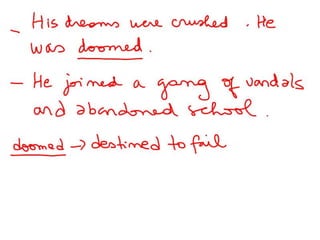 - His dreams were crushed. He
was doomed.
- He joined a gang of vandals
and abandoned school.
doomed → destined to fail